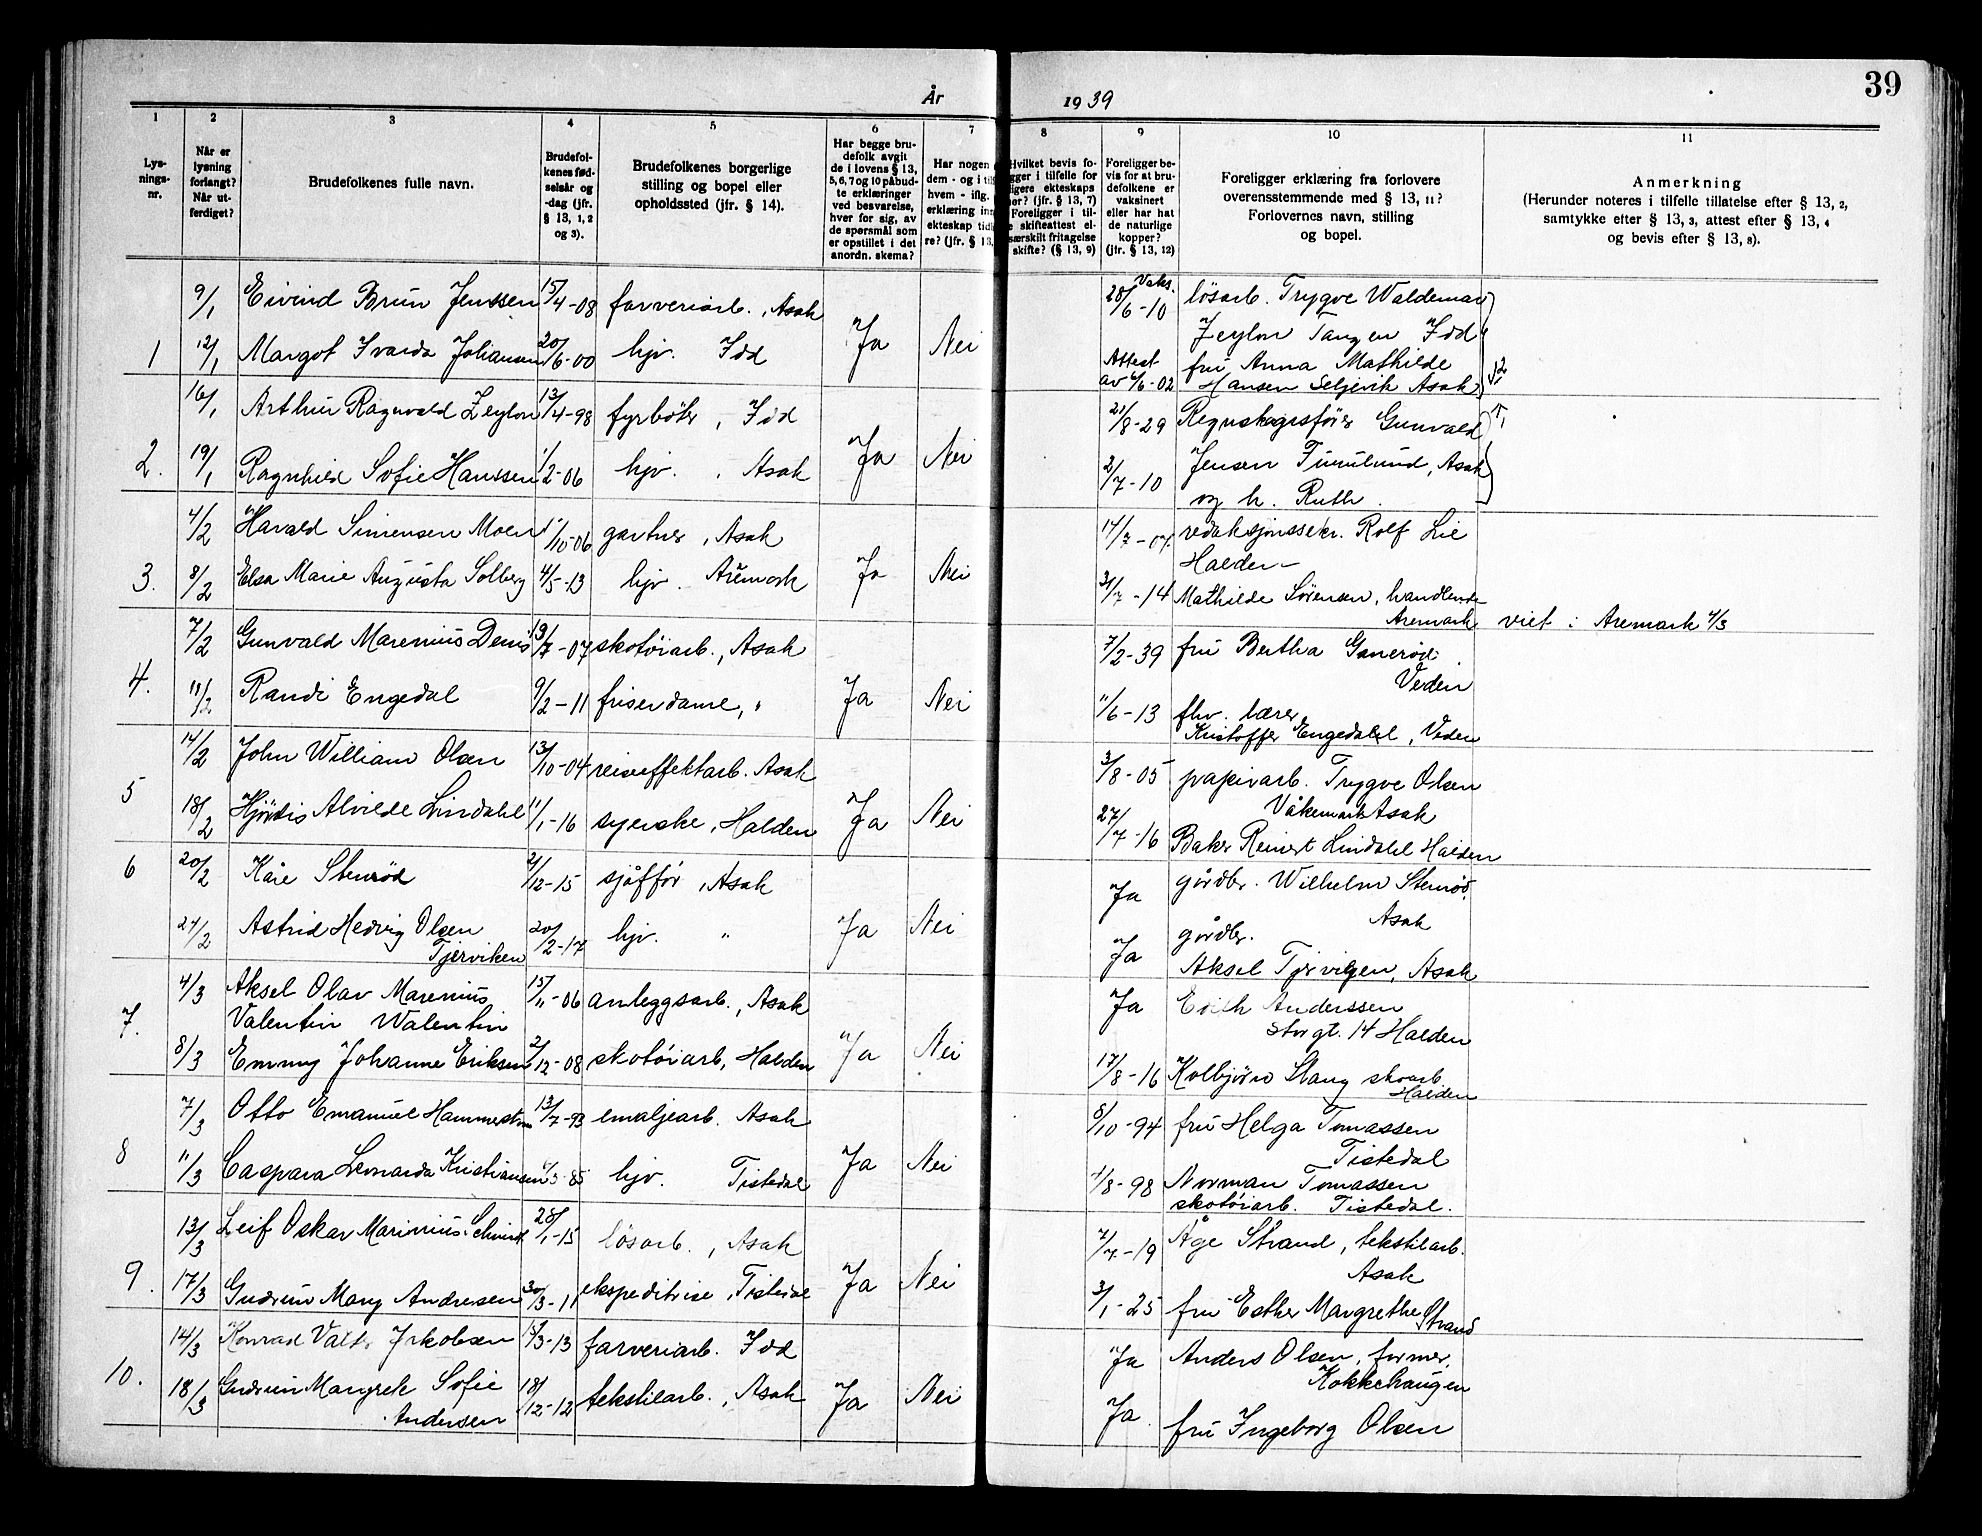 39
År 1939
1 2 3 4 5 6 7 8 9 10 11
Lys-
nings-
nr.
Når er
lysning
forlangt?
Når ut-
ferdiget?
Brudefolkenes fulle navn.
Brudefol-
kenes fød-
selsår og
-dag (jfr.
§ 13, 1, 2
og 3).
Brudefolkenes borgerlige
stilling og bopel eller
opholdssted (jfr. § 14).
Har begge bru-
defolk avgit
de i lovens § 13,
5, 6, 7 og 10 påbud-
te erklæringer
ved besvarelse,
hver for sig, av
de spørsmål som
er opstillet i det
anordn. skema?
Har nogen
dem - og i til
hvem - iflg.
erklæring inn
ekteskap tid
re? (jfr. § 13,
Hvilket bevis fo-
gger i tilfelle for
ligere ekteskaps
ner? (jfr. § 13, 7)
Foreligger i til-
e skifteattest el-
særskilt fritagelse
skifte? (§ 13, 9)
Foreligger be-
vis for at bru-
defolkene er
vaksinert
eller har hat
de naturlige
kopper?
(jfr. § 13, 12)
Foreligger erklæring fra forlovere
overensstemmende med § 13, 11?
Forlovernes navn, stilling
og bopel.
Anmerkning
(Herunder noteres i tilfelle tillatelse efter § 13, 2,
samtykke efter § 13, 3, attest efter § 13, 4
og bevis efter § 13, 8).
9/1 Eivind Brun Jenssen 15/4-08 farveriarb., Asak Vaks. 28/6-10 løsarb. Trygve Waldemar
Zeylon Tangen Idd
1 12/1 Margot Ivarda Johansen 20/6-00 hjv. Idd Ja Nei Attest av 6/6-02 fru Anna Mathilde
Hansen Seljevik Asak
16/1 Arthur Ragnvald Zeylon 13/4-98 fyrbøter, Idd 21/8-29 Regnskapsfører Gunvald
2. 19/1 Ragnhild Sofie Hanssen 1/2-06 hjv., Asak Ja Nei 2/7-10 Jensen Furulund, Asak
og h. Ruth
4/2 Harald Simensen Moen 1/10-06 gartner, Asak 17/7-07 redaksjonssekr. Rolf Lie
Halden
3. 8/2 Elsa Marie Augusta Solberg 4/5-13 hjv. Aremark Ja Nei 31/7-14 Mathilde Sørensen, handlende
Aremark viet i Aremark 4/3
7/2 Gunvald Marenius Denis 19/7-07 skotøiarb., Asak 7/2-39 fru Bertha Ganerød
Veden
4. 11/2 Randi Engedal 9/2-11 friserdame, " Ja Nei 11/6-13 fhv. lærer
Kristoffer Engedahl, Veden
14/2 John William Olsen 13/10-04 reiseeffektarb. Asak 3/8-05 papirarb. Trygve Olsen
Våkemark Asak
5 18/2 Hjørdis Alvilde Lindahl 11/1-16 syerske, Halden Ja Nei 27/7-16 Baker Reinert Lindahl Halden
6 20/2 Kåre Stenrød 2/12-15 sjåfør, Asak Ja gårdbr. Wilhelm Stenrød,
Asak
24/2 Astrid Hedvig Olsen 20/2-17 hjv. " Ja Nei Ja gårdbr.
Tjerviken Aksel Tjerviken, Asak
4/3 Aksel Olav Marenius 15/11-06 anleggsarb., Asak Ja Edith Anderssen
7. Valentin Walentin Storgt. 14 Halden
8/3 Emmy Johanne Eriksen 2/12-08 skotøiarb, Halden Ja Nei 17/8-16 Kolbjørn Stang skoarb.
Halden
7/3 Otto Emanuel 13/7-93 emaljearb. Asak 8/10-94 fru Helga Tomassen
Tistedal
8 11/3 Caspara Leonarda Kristiansen hjv. Tistedal Ja Nei 1/8-98 Norman Tomassen
skotøiarb. Tistedal.
13/3 Leif Oskar Marinius Schmidt 28/1-15 løsarb., Asak 7/7-19 Åge Strand, tekstilarb.
Asak
9. 17/3 Gudrun Mary Andresen 30/3-11 ekspeditrise, Tistedal Ja Nei 3/1-25 fru Esther Margrethe Strand
14/3 Konrad Jakobsen 15/3-13 farveriarb. Idd Ja Anders Olsen, former,
Kokkehaugen
10. 18/3 Gudrun Margrete Sofie 18/12-12 tekstilarb., Asak Ja Nei Ja. fru Ingeborg Olsen
Andersen